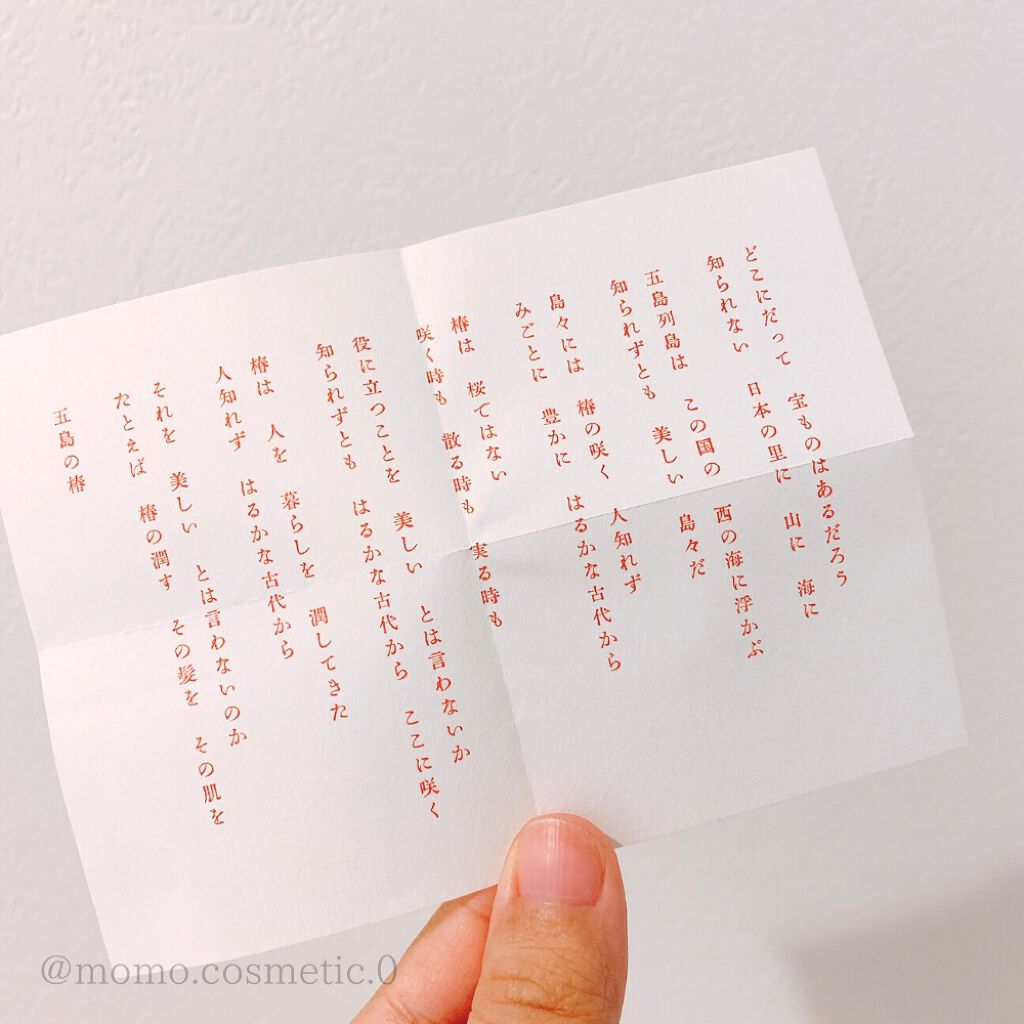 どこにだって　宝ものはあるだろう
知られない　日本の里に　山に　海に
五島列島は　この国の　西の海に浮かぶ
知られずとも　美しい　島々だ
島々には　椿の咲く　人知れず
みごとに　豊かに　はるかな古代から
椿は　桜ではない
咲く時も　散る時も　実る時も
役に立つことを　美しい　とは言わないか
知られずとも　はるかな古代から　ここに咲く
椿は　人を　暮らしを　潤してきた
人知れず　はるかな古代から
それを　美しい　とは言わないのか
たとえば　椿の潤す　その髪を　その肌を
五島の椿
@momo.cosmetic.0